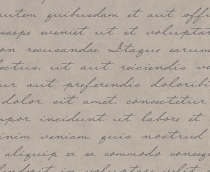 rutem quibusdam et aut offi
saepe eveniet ut et voluptat
on recusandae Itaque earum
lectus, ut aut reiciendis vo
ur aut perferendis doloribu
dolor sit amet, consectetur
mpor incidunt ut labore et
inim veniam quis nostrud
aliquip ex ea commodo conseq